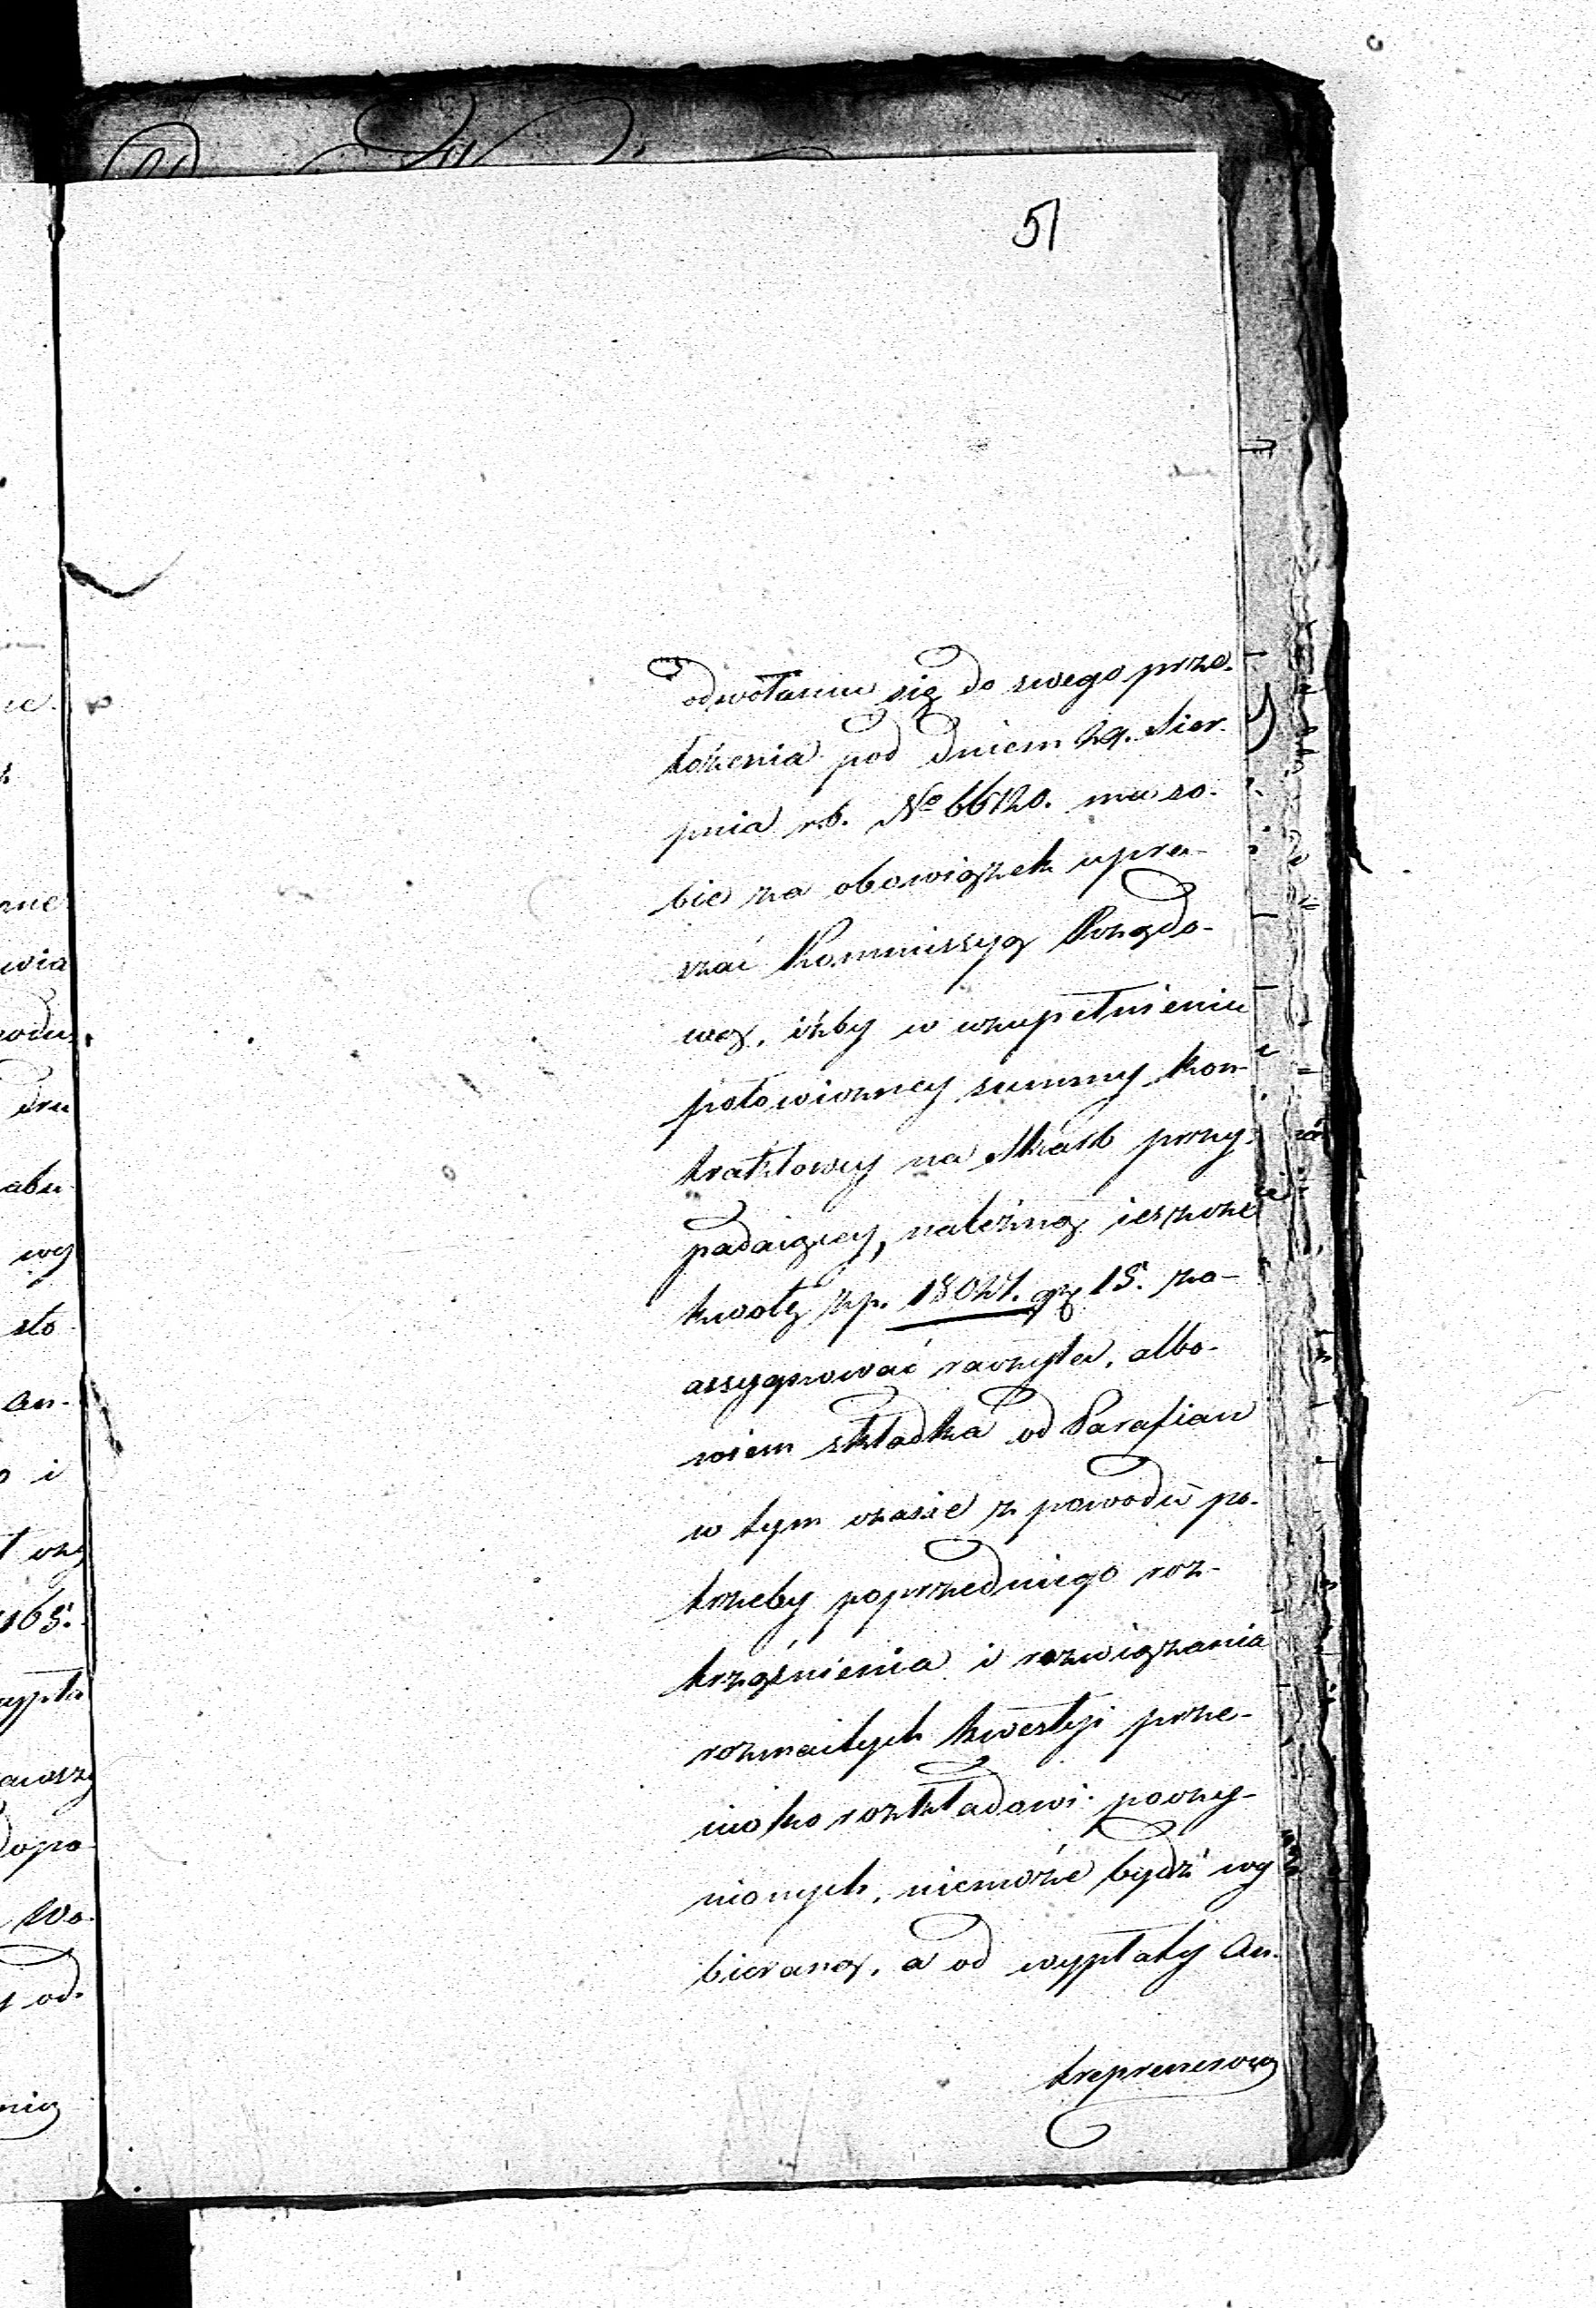 51
odwołaniu się do swego prze-
łożenia pod dniem 29. Sier-
pnia r.b. No 66120. ma so-
bie za obowiązek upra-
szać Kommissyą Rządo-
wą, iżby w uzupełnieniu
połowiczney summy kon-
traktowey na Skarb przy-
padaiącey, należną ieszcze
kwotę zp. 18021. gr 15. za-
assygnować raczyła, albo-
wiem składka od Parafian
w tym czasie z powodu po-
trzeby poprzedniego roz-
trząśnienia i rozwiązania
rozmaitych kwestyi prze-
ciwko rozkładowi poczy-
nionych, niemoże bydź wy
bieraną, a od wypłaty An-
treprenerowi